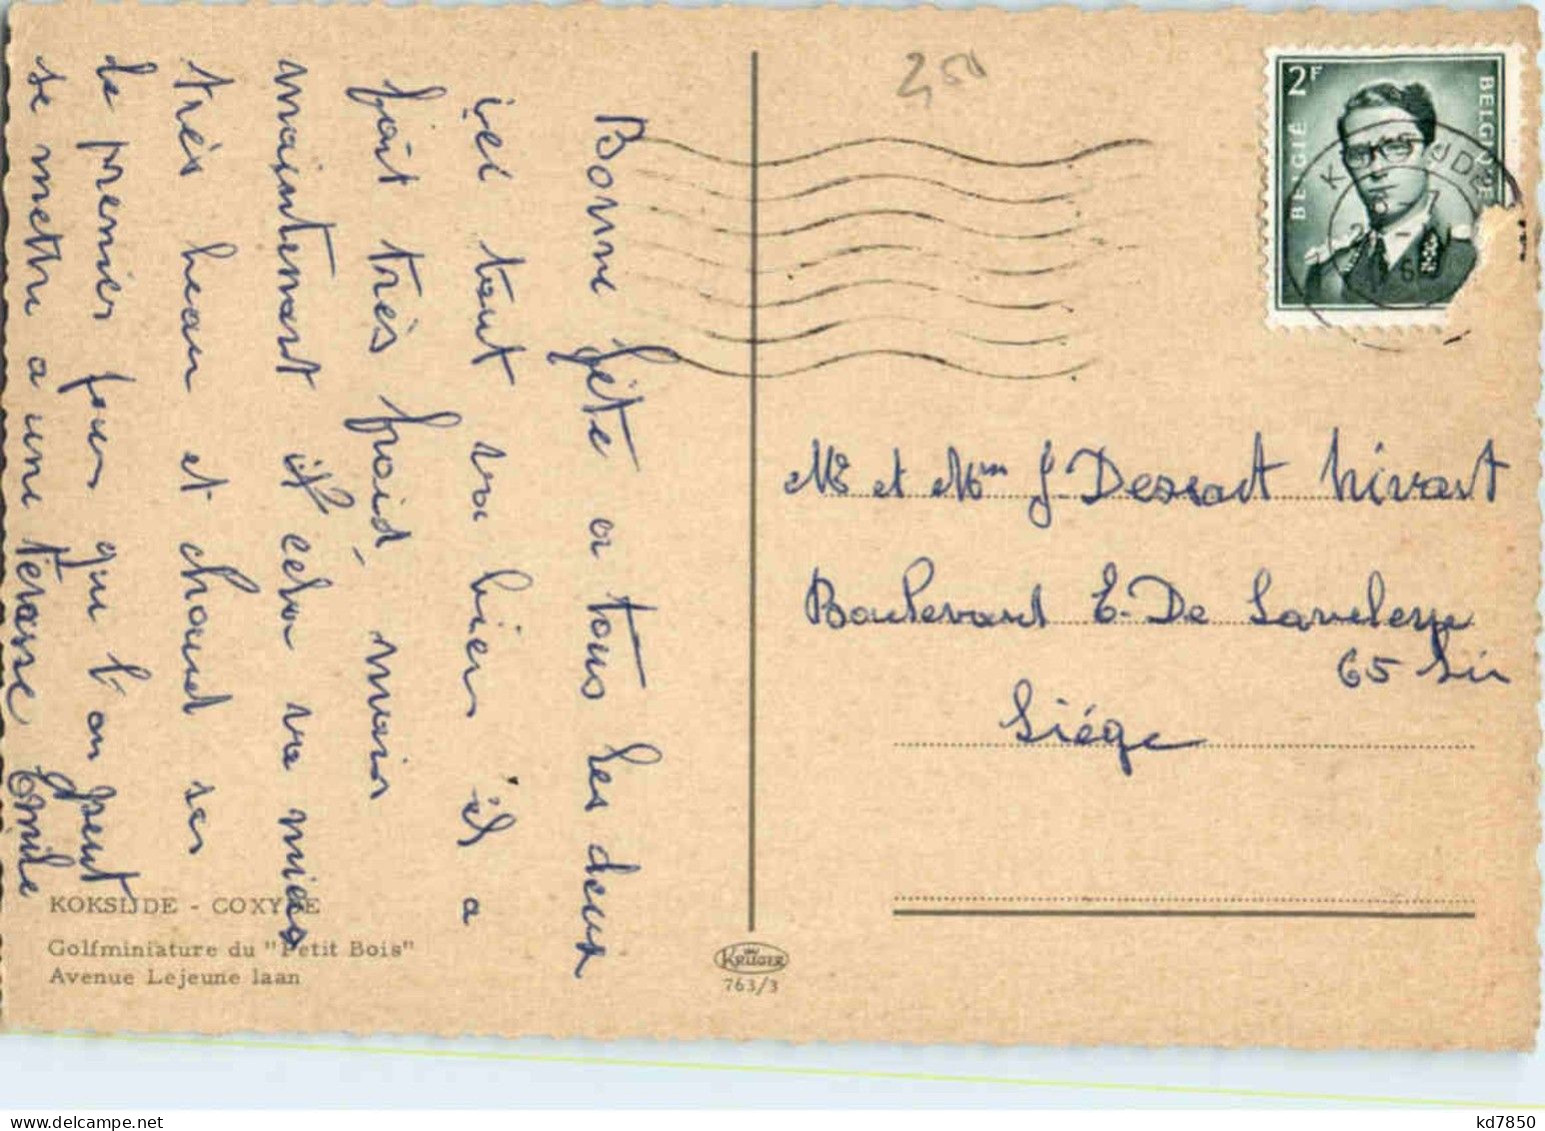 Bonne fête a tous les deux
ici tout va bien il a
fait très froid, mais
maintenant il cela va mieux
très beau et chaud ses
le premier jour qu l'on peut
se mettre a une terasse Emile
KOKSIJDE - COXYDE
Golfminiature du "Petit Bois"
Avenue Lejeune laan
KRUGER
763/3
2,50
2F
BELGIË
BELGIQUE
KOKSIJDE
Mr et Mme J Dessart Nivart
Boulevard E. De Laveleye
65
Liége
kd7850